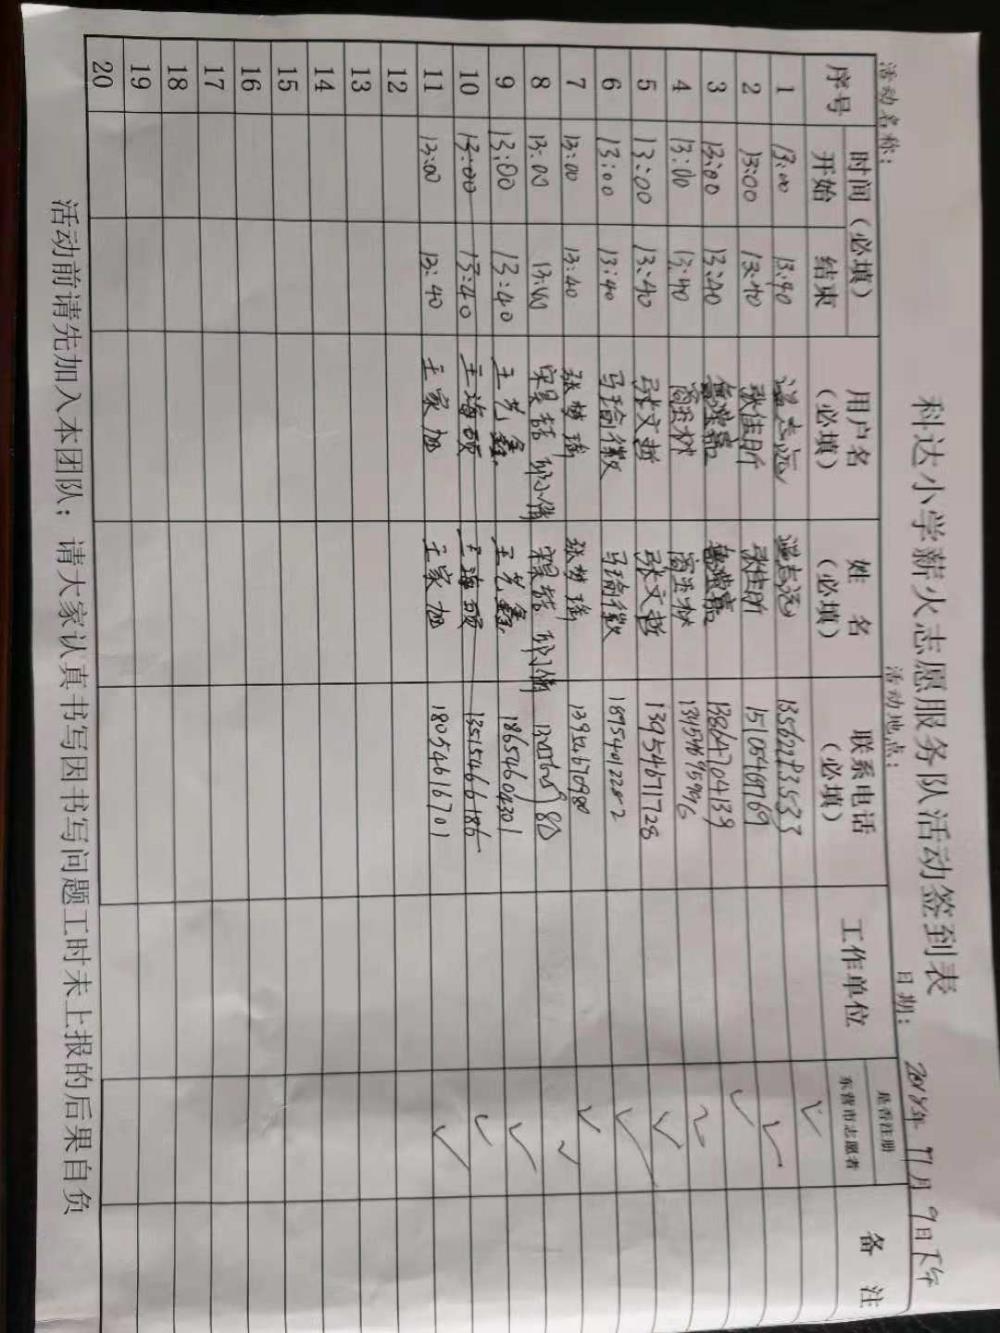 科达小学薪火志愿服务队活动签到表
活动名称： 活动地点： 日期： 11月9日下午
序号 时间（必填） 用户名（必填） 姓名（必填） 联系电话（必填） 工作单位 是否注册东营市志愿者 备注
开始 结束
1 13:00 13:40 温志远 温志远 13562293533 ✓
2 13:00 13:40 张佳昕 张佳昕 15105469769 ✓
3 13:00 13:40 13864704139 ✓
4 13:00 13:40 商玉林 商玉林 ✓
5 13:00 13:40 张文哲 张文哲 13954671728 ✓
6 13:00 13:40 马瑜徽 马瑜徽 18954012282 ✓
7 13:00 13:40 张梦瑶 张梦瑶 13954670980 ✓
8 13:00 13:40 ✓
9 13:00 13:40 王艺鑫 王艺鑫 18654604301 ✓
10 13:00 13:40 王海硕 王海硕 13515466186 ✓
11 13:00 13:40 王家旭 王家旭 18054616701 ✓
12
13
14
15
16
17
18
19
20
活动前请先加入本团队；请大家认真书写因书写问题工时未上报的后果自负